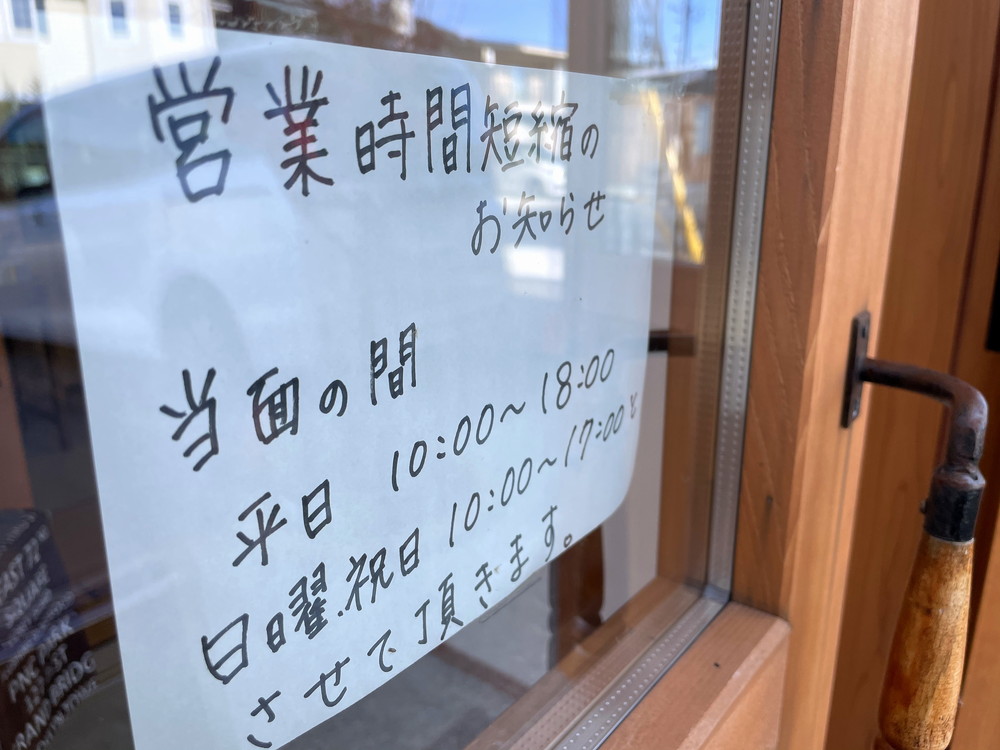 営業時間短縮の
お知らせ
当面の間
平日 10:00～18:00
日曜.祝日 10:00～17:00と
させて頂きます。